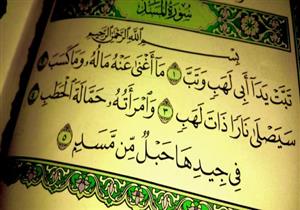 سُورَةُ الْمَسَدِ
بِسْمِ اللَّهِ الرَّحْمَٰنِ الرَّحِيمِ
تَبَّتْ يَدَا أَبِي لَهَبٍ وَتَبَّ ١ مَا أَغْنَىٰ عَنْهُ مَالُهُ وَمَا كَسَبَ ٢
سَيَصْلَىٰ نَارًا ذَاتَ لَهَبٍ ٣ وَامْرَأَتُهُ حَمَّالَةَ الْحَطَبِ ٤
فِي جِيدِهَا حَبْلٌ مِّن مَّسَدٍ ٥